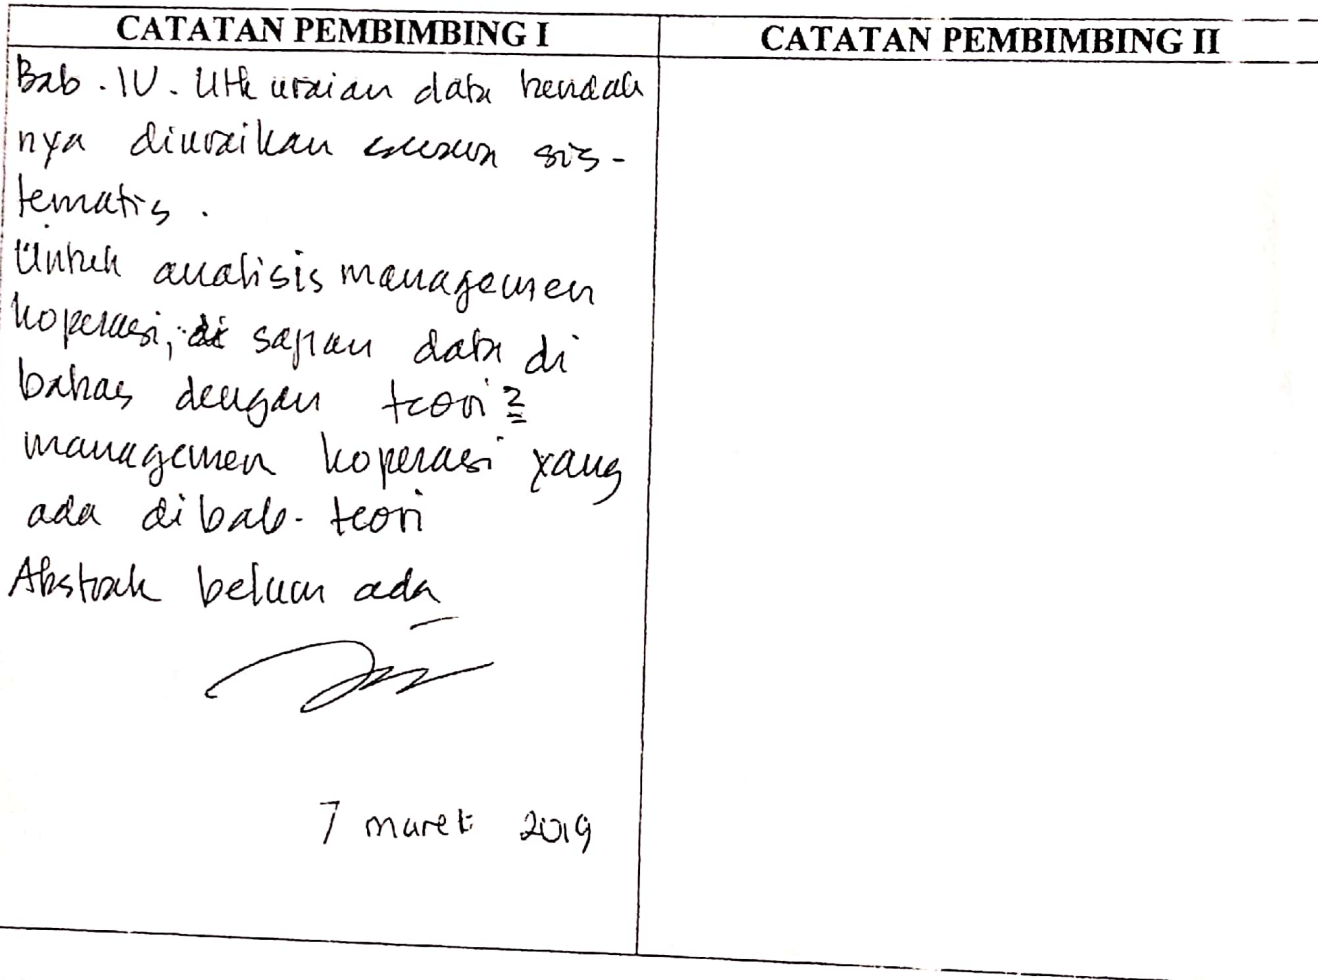 CATATAN PEMBIMBING I
CATATAN PEMBIMBING II
Bab . IV . Utk uraian data hendak
nya diuraikan secara sis-
tematis .
Untuk analisis managemen
koperasi, sajian data di
bahas dengan teori²
managemen koperasi yang
ada dibab- teori
Abstrak belum ada
7 maret 2019